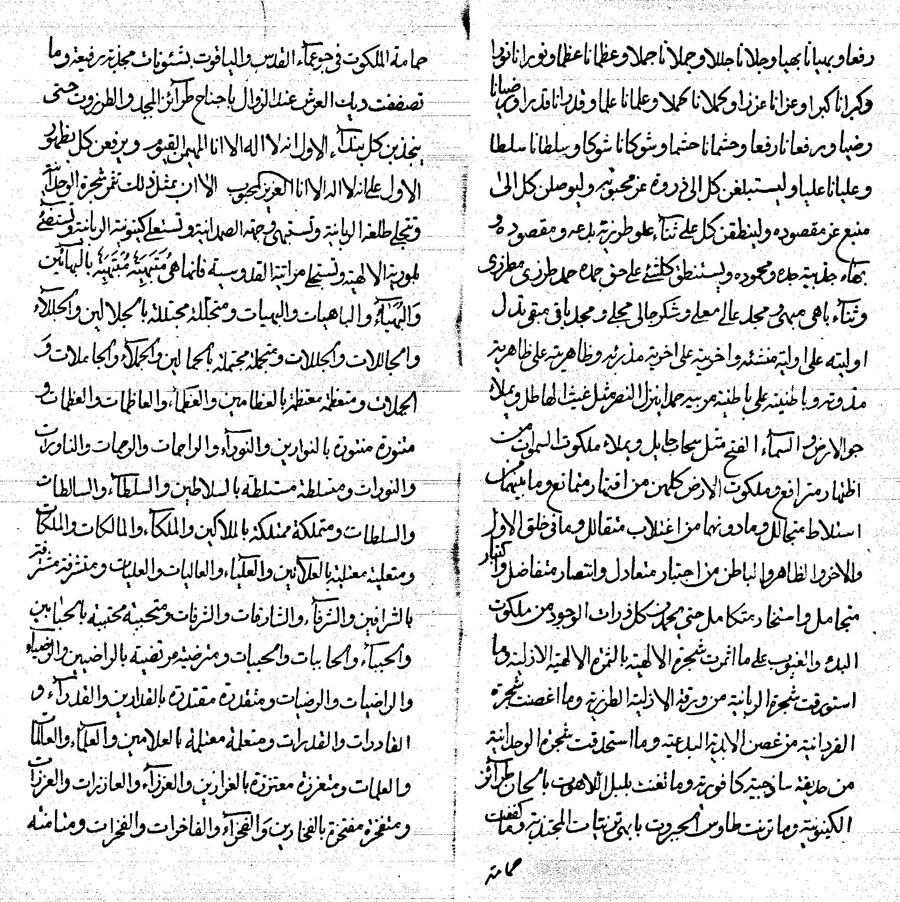 رفعا وبهيانا بهيا وجلالانا جللا وجملانا جملا وعظمانا عظما ونورانا نورا
وكبرانا كبرا وعزانا عززا وكملانا كملا وعلمانا علما وقدرانا قدرا ورضيانا
رضيا ورفعانا رفعا وحشمانا حشما وشوكانا شوكا وسلطانا سلطا
وعليانا عليا وليستبلغن كل الى ذروة عز محبوبه وليوصلن كل الى
منبع عز مقصوده ولينطقن كل على ثناء علو طرزية بدعه ومقصوده و
بهاء جذبية جده ومحموده وليستنطق كلشئ على حق حمده حمد طرزي مطرزي
وثناء باهي مبهي ومجد عالي معلي وشكر جالي مجلي ومجد باقي مبقي تدل
اوليته على اولية منشئه واخريته على اخرية مذرئه وظاهريته على ظاهرية
مذوته وباطنيته على باطنية مربيه حمدا ينزل النصر مثل غيث الهاطل ويملاء
جو الارض والسماء الفتح مثل سحاب وبملاء ملكوت السموات من
اظهار مترافع وملكوت الارض كلهن من اقتهار متمانع وما بينهما من
استلاط متجالل وما دونهما من اغتلاب متقالل وما في خلق الاول
والاخر والظاهر والباطن من اجتبار متعادل وانتصار متفاضل واكتبار
متجامل واستخار متكامل حتى يحمدن كل ذرات الوجود من ملكوت
البدء والغيوب على ما اثمرت شجرة الالهية بالثمرة الالهية الازلية وما
استورقت شجرة الربانية من ورقة الازلية الطرزية وما اغصنت شجرة
الفردانية من غصن الابدية البدعية وما استحدقت شجرة الوحدانية
من حديقة ساذجية كافورية وما تغنت بلبل اللاهوت بالحان طرائز
الكينونية وما تزينت طاوس الجبروت بابهى تزينات المجتذبة وما كفكفت
حمامة
حمامة الملكوت في جو عماء القدس والياقوت بشئونات مجذبة رفيعة وما
تصفقت ديك العرش عند الزوال باجناح طرائز المجد والطرزوت حتى
ينجذبن كل بنداء الاول انه لا اله الا انا المهيمن القيوم ويرفعن كل بظهور
الاول على انه لا اله الا انا العزيز المحبوب الا ان بمثل ذلك تثمر شجرة الوحدانية
وتتجلى طلعة الربانية وتستبهى وجهة الصمدانية وتستعلى كينونية الربانية وتستضئ
بلورية الالهية وتستجلى مراتية القدوسية فانها هي متبهية مبتهية بالبهائين
والبهياء والباهيات والبهيات ومتجللة مجتللة بالجلالين والجللاء
والجاللات والجللات ومتجملة مجتملة بالجمالين والجملاء والجاملات و
الجملات ومتعظمة معتظمة بالعظامين والعظماء والعاظمات والعظمات و
متنورة منتورة بالنوارين والنوراء والراحمات والرحمات والناورات
والنورات ومتسلطة مستلطة بالسلاطين والسلطاء والسالطات
والسلطات ومتملكة ممتلكة بالملاكين والملكاء والمالكات والملكات
ومتعلية معتلية بالعلائين والعلياء والعاليات والعليات ومتشرفة مشترفة
بالشرافين والشرفاء والشارفات والشرفات ومتحببة محتببة بالحبابين
والحبباء والحاببات والحببات ومترضية مرتضية بالراضيين والرضياء
والراضيات والرضيات ومتقدرة مقتدرة بالقدارين والقدراء و
القادرات والقدرات ومتعلمة معتلمة بالعلامين والعلماء والعالمات
والعلمات ومتعززة معتززة بالعزازين والعززاء والعاززات والعززات
ومتفخرة مفتخرة بالفخارين والفخراء والفاخرات والفخرات ومتامنة